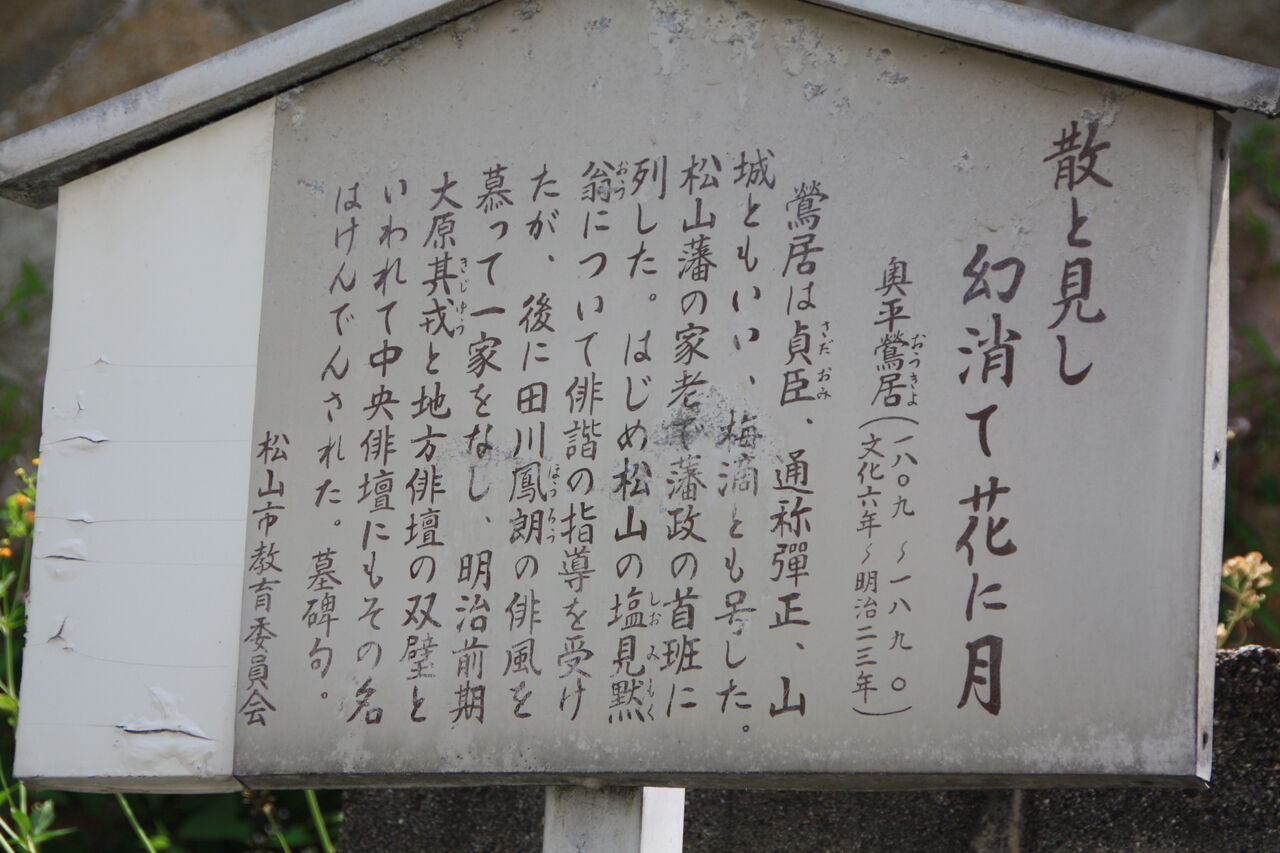 散と見し
幻消て花に月
奥平鶯居（一八〇九～一八九〇）
おうきよ
（文化六年～明治二三年）
鶯居は貞臣、通称彈正、山
さだおみ
城ともいい、梅滴とも号した。
松山藩の家老で藩政の首班に
列した。はじめ松山の塩見黙
しおみもく
翁について俳諧の指導を受け
おう
たが、後に田川鳳朗の俳風を
ほうろう
慕って一家をなし、明治前期
大原其戎と地方俳壇の双璧と
きじゅう
いわれて中央俳壇にもその名
はけんでんされた。墓碑句。
松山市教育委員会